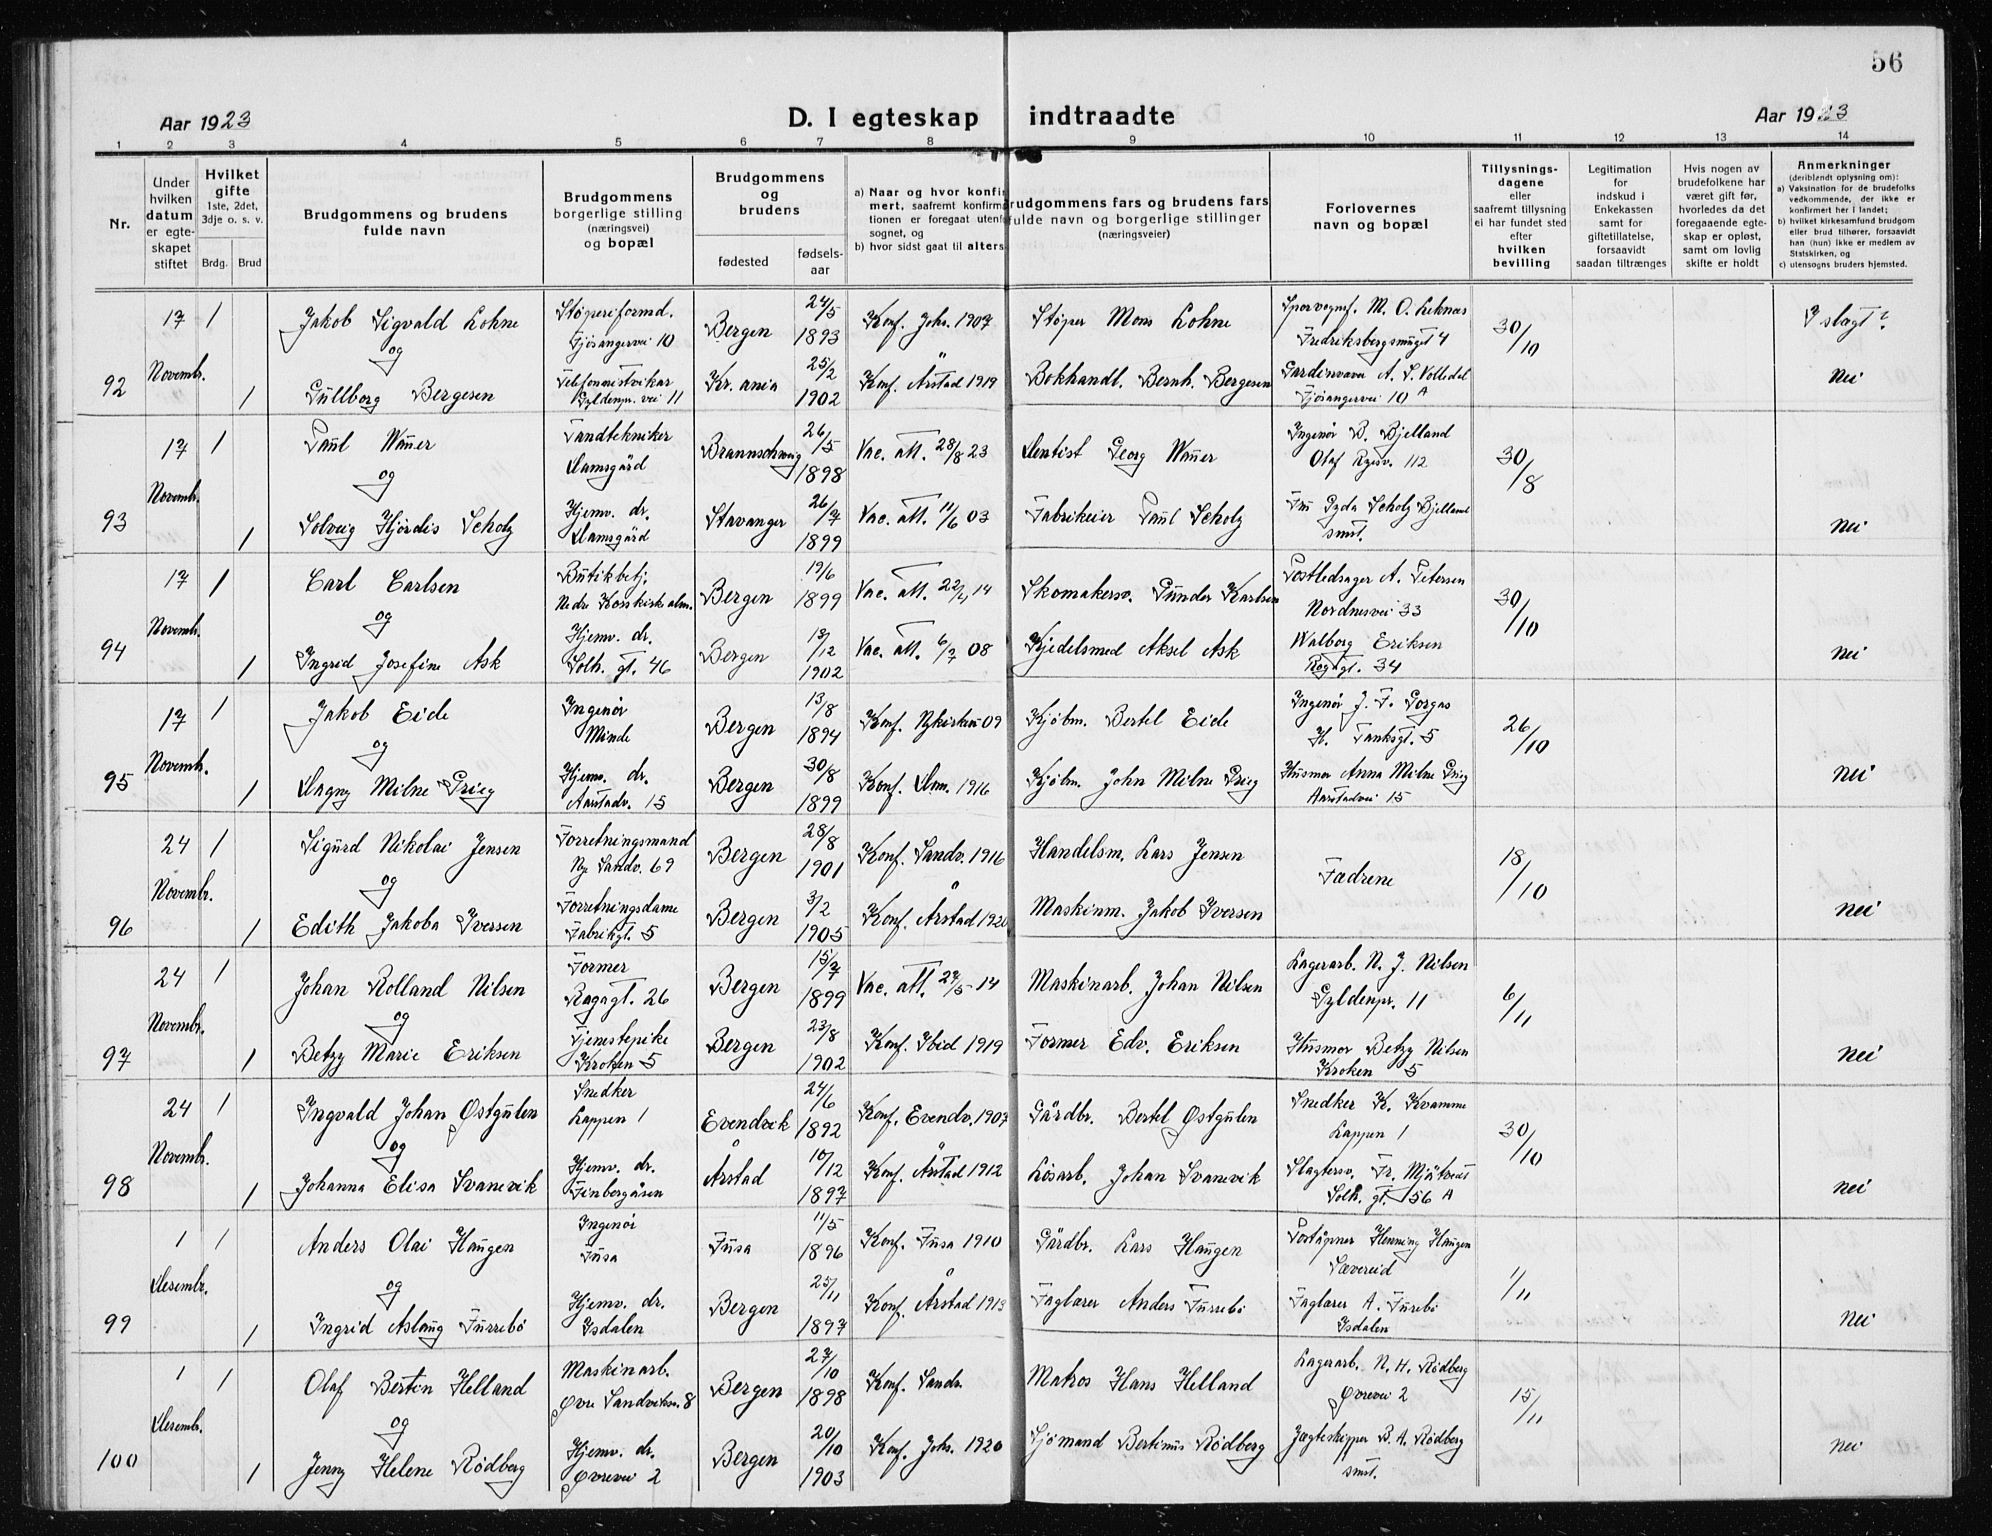 56
Aar 1923
D. I egteskap indtraadte
Aar 1923
1 2 3 4 5 6 7 8 9 10 11 12 13 14
Nr.
Under hvilken datum er egteskapet stiftet
Hvilket gifte
1ste, 2det, 3dje o. s. v.
Brdg. Brud
Brudgommens og brudens
fulde navn
Brudgommens
borgerlige stilling
(næringsvei)
og bopæl
Brudgommens
og
brudens
fødested
fødsels-
aar
a) Naar og hvor konfir
mert, saafremt konfirma
tionen er foregaat utenfo
sognet, og
b) hvor sidst gaat til alters
rudgommens fars og brudens fars
fulde navn og borgerlige stillinger
(næringsveier)
Forlovernes
navn og bopæl
Tillysnings-
dagene
eller
saafremt tillysning
ei har fundet sted
efter
hvilken
bevilling
Legitimation
for
indskud i
Enkekassen
samt for
giftetillatelse,
forsaavidt
saadan tiltrænges
Hvis nogen av
brudefolkene har
været gift før,
hvorledes da det
foregaaende egte-
skap er opløst,
samt om lovlig
skifte er holdt
Anmerkninger
(deriblendt oplysning om):
a) Vaksination for de brudefolks
vedkommende, der ikke er
konfirmert her i landet;
b) hvilket kirkesamfund brudgom
eller brud tilhører, forsaavidt
han (hun) ikke er medlem av
Statskirken, og
c) utensogns bruders hjemsted.
92 17 Novembr. 1
Jakob Sigvald Lohne
Støperiformd.
Fjøsangervei 10
Bergen 24/5 1893
Konf. Joh. 1907
Støper Mons Lohne
Sporvognsf. M. O. Leknæs
Fredriksbergsmuget 4
30/10
I slagt?
og
1 Gullborg Bergesen
Telefonnistvikar
Gyldenpr. vei 11
Kr. ania 25/2 1902
Konf. Årstad 1919
Bokhandl. Bernh. Bergesen
Fjøsangervei 10 A
Nei
93 17 Novembr. 1
Paul Wauer
Tandtekniker
Damsgård
Braunschweig 26/5 1898
Vac. att. 28/8 23
Dentist Georg Wauer
Ingenør B. Bjelland
Olaf Ryesv. 112
30/8
og
1 Solveig Hjørdis Scholz
Hjemv. dr.
Damsgård
Stavanger 26/7 1899
Vac. att. 11/6 03
Fabrikeier Paul Scholz
Fru Gyda Scholz Bjelland
smst.
Nei
94 17 Novembr. 1
Carl Carlsen
Butikbetj.
Nedre Korskirkalm.
Bergen 19/6 1899
Vac. att. 22/4 14
Skomakersv. Gunder Karlsen
Postledsager A. Petersen
Nordnesvei 33
30/10
og
1 Ingrid Josefine Ask
Hjemv. dr.
Solh. gt. 46
Bergen 13/12 1902
Vac. att. 6/7 08
Kjedelsmed Aksel Ask
Walborg Eriksen
Ragagt. 34
Nei
95 17 Novemb. 1
Jakob Eide
Ingenør
Minde
Bergen 13/8 1894
Konf. Nykirken 09
Kjøbm. Bertel Eide
Ingenør J. F. Gorgas
H. Tanksgt. 5
26/10
og
1 Dagny Milne Grieg
Hjemv. dr.
Aarstadv. 15
Bergen 30/8 1899
Konf. Dom. 1916
Kjøbm. John Milne Grieg
Husmor Anna Milne Grieg
Aarstadvei 15
Nei
96 24 Novembr. 1
Sigurd Nikolai Jensen
Forretningsmand
Nye Sandv. 69
Bergen 28/8 1901
Konf. Sandv. 1916
Handelsm. Lars Jensen
Fædrene
18/10
og
1 Edith Jakoba Iversen
Forretningsdame
Fabrikgt. 5
Bergen 3/2 1905
Konf. Årstad 1920
Maskinm. Jakob Iversen
Nei
97 24 Novembr. 1
Johan Rolland Nilsen
Former
Ragagt. 26
Bergen 15/7 1899
Vac. att. 27/5 14
Maskinarb. Johan Nilsen
Lagerarb. N. J. Nilsen
Gyldenpr. 11
6/11
og
1 Betzy Marie Eriksen
Tjenestepike
Kroken 5
Bergen 23/8 1902
Konf. Ibid 1919
Former Edv. Eriksen
Husmor Betzy Nilsen
Kroken 5
Nei
98 24 Novembr. 1
Ingvald Johan Østgulen
Snedker
Lappen 1
Evendvik 24/6 1892
Konf. Evendv. 1907
Gårdbr. Bertel Østgulen
Snedker K. Kvamme
Lappen 1
30/10
og
1 Johanna Elisa Svanevik
Hjemv. dr.
Finbergåsen
Årstad 10/12 1897
Konf. Årstad 1912
Løsarb. Johan Svanevik
Slagtersv. Fr. Mjåtveit
Solh. gt. 156 A
Nei
99 1 Desembr. 1
Anders Olai Haugen
Ingenør
Fusa
Fusa 11/5 1896
Konf. Fusa 1910
Gårdbr. Lars Haugen
Poståpner Henning Haugen
Sævereid
1/11
og
1 Ingrid Aslaug Furrebø
Hjemv. dr.
Isdalen
Bergen 25/11 1897
Konf. Årstad 1913
Faglærer Anders Furrebø
Faglærer A. Furebø
Isdalen
Nei
100 1 Desembr. 1
Olaf Bertin Helland
Maskinarb.
Øvre Sandviksv. 8
Bergen 27/10 1898
Konf. Sandv.
Matros Hans Helland
Lagerarb. N. H. Rødberg
Øvrevei 2
15/11
og
1 Jenny Helene Rødberg
Hjemv. dr.
Øvrevei 2
Bergen 20/10 1903
Konf. Joh. 1920
Sjømand Bertinus Rødberg
Jægteskipper B. A. Rødberg
smst.
Nei